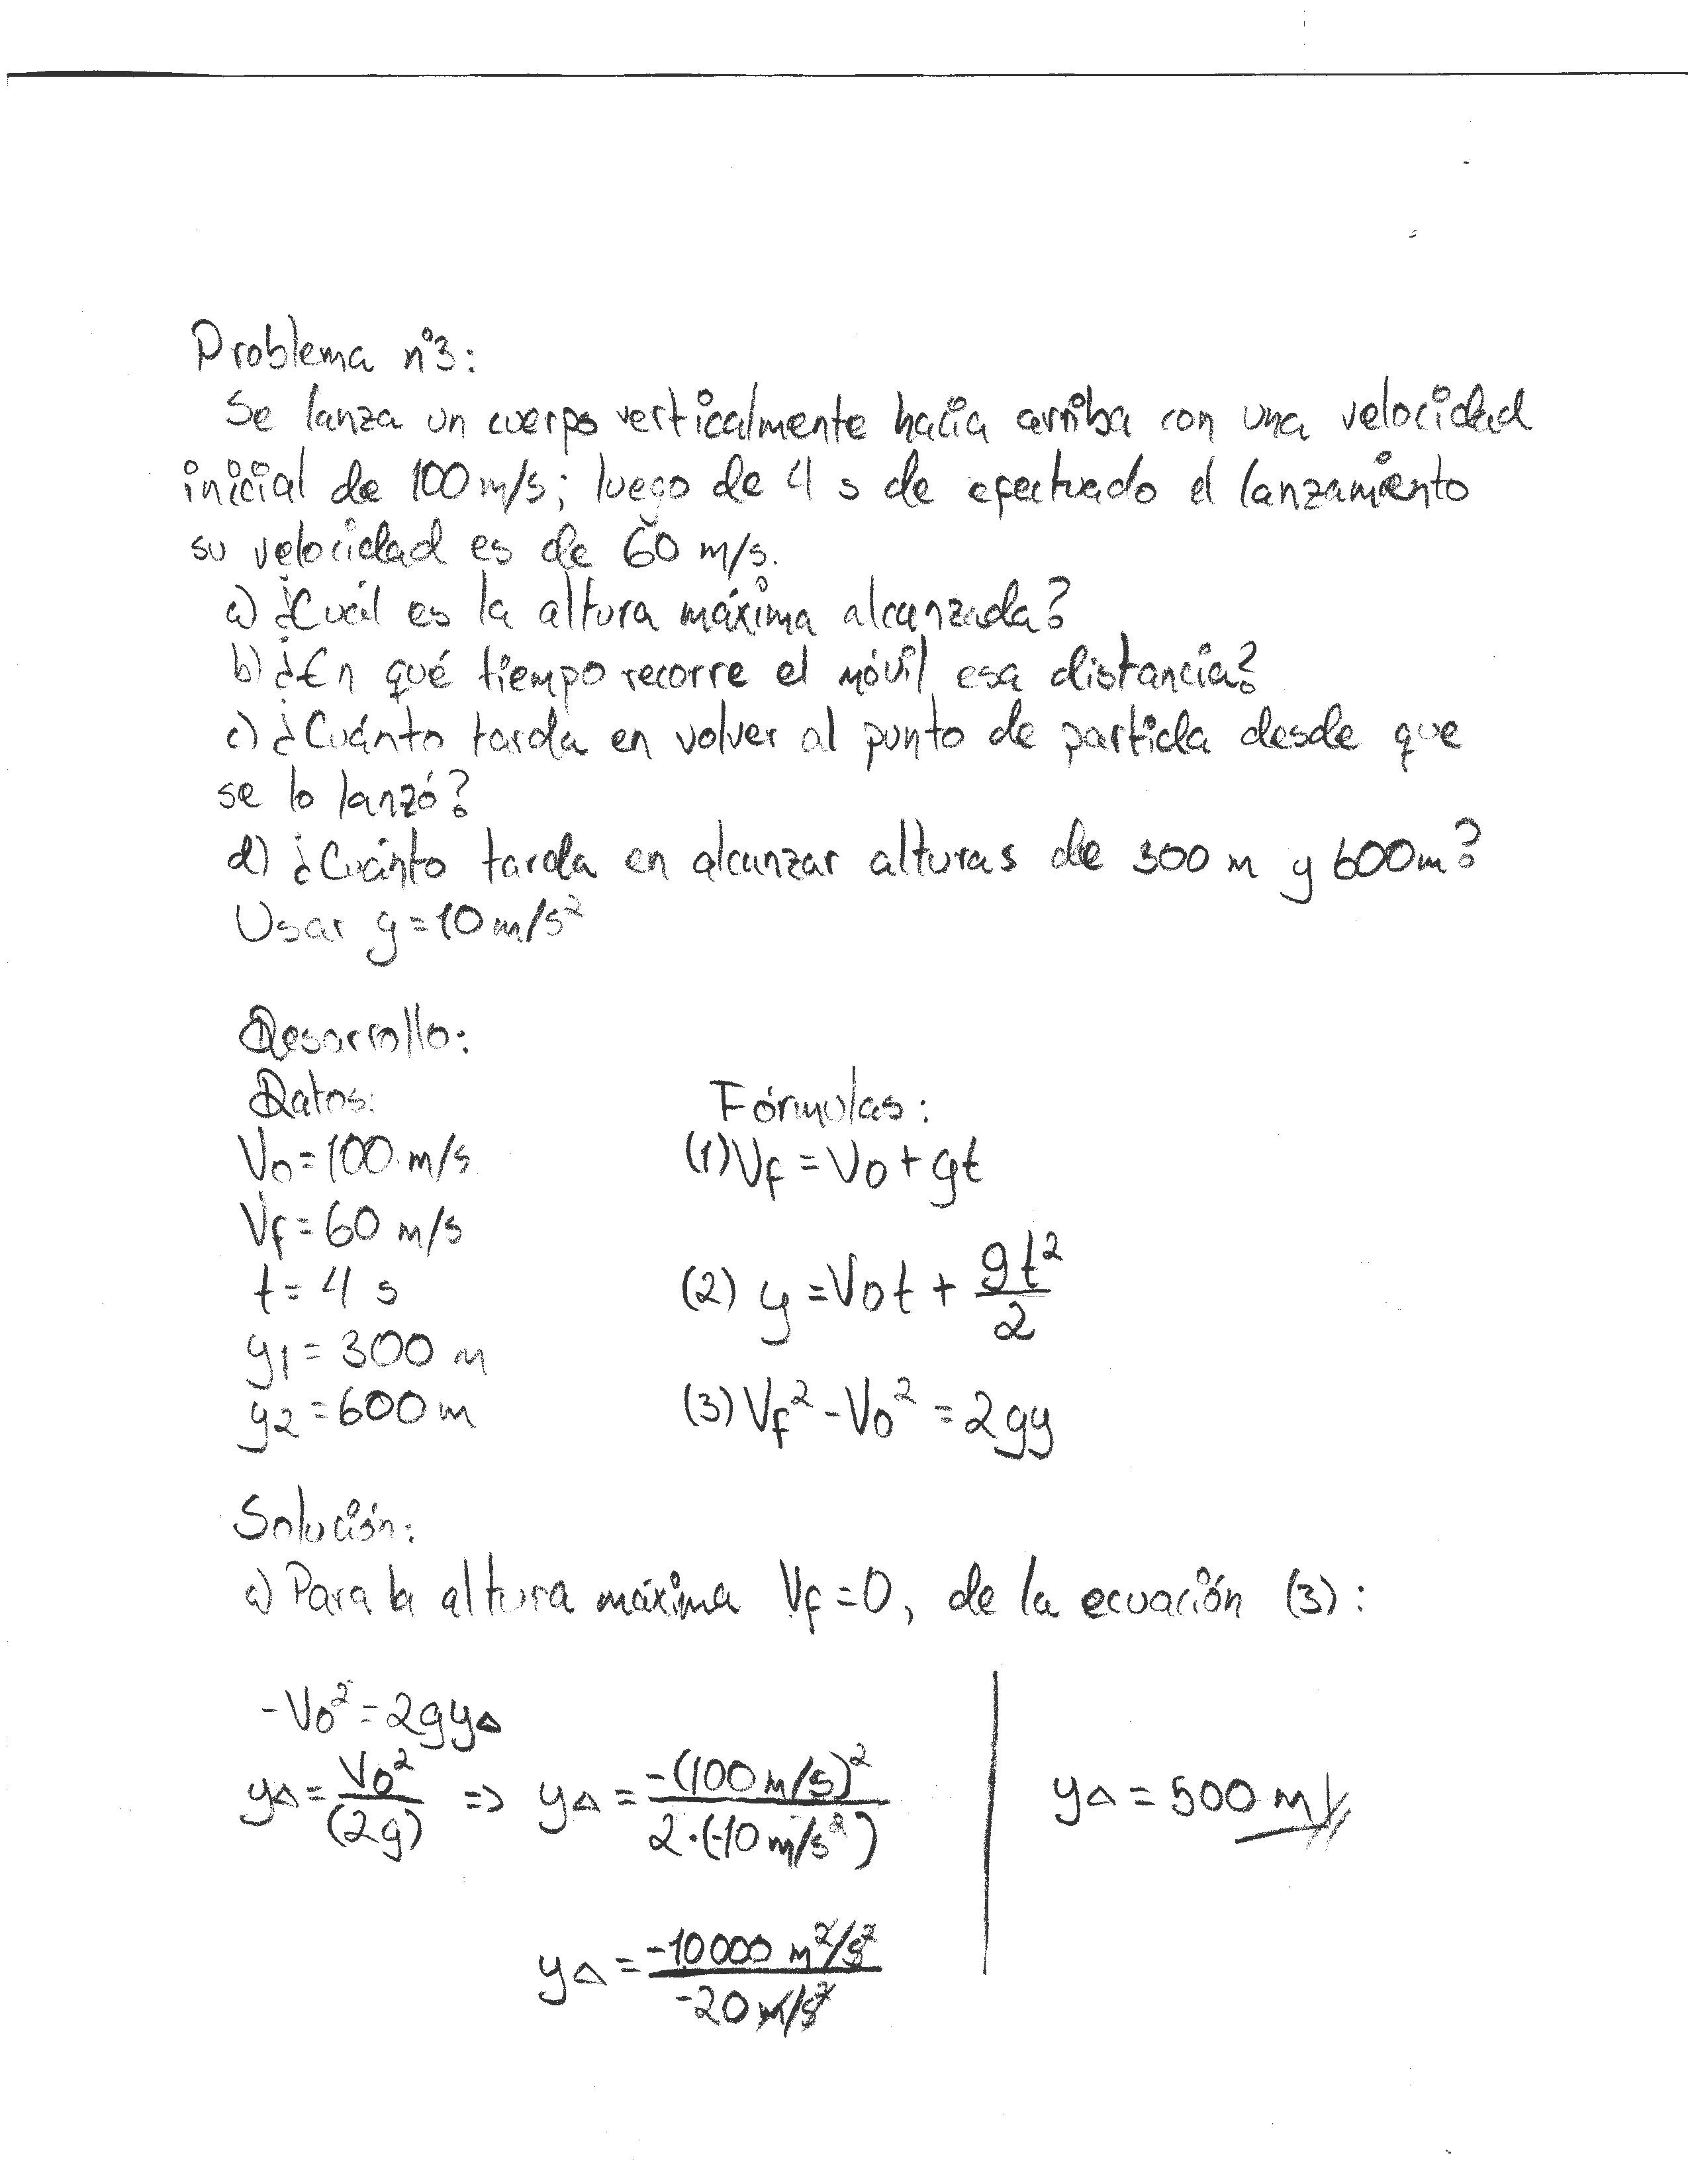 Problema n°3:
Se lanza un cuerpo verticalmente hacia arriba con una velocidad
inicial de 100 m/s; luego de 4 s de efectuado el lanzamiento
su velocidad es de 60 m/s.
a) ¿Cuál es la altura máxima alcanzada?
b) ¿En qué tiempo recorre el móvil esa distancia?
c) ¿Cuánto tarda en volver al punto de partida desde que
se lo lanzó?
d) ¿Cuánto tarda en alcanzar alturas de 300 m y 600 m?
Usar g = 10 m/s²
Desarrollo:
Datos:
V0 = 100 m/s
Vf = 60 m/s
t = 4 s
y1 = 300 m
y2 = 600 m
Fórmulas:
(1) Vf = V0 + gt
(2) y = V0t + gt²/2
(3) Vf² - V0² = 2gy
Solución:
a) Para la altura máxima Vf = 0, de la ecuación (3):
-V0² = 2gyΔ
yΔ = V0²/(2g) => yΔ = -(100 m/s)²/2·(-10 m/s²)
yΔ = -10000 m²/s²/-20 m/s²
yΔ = 500 m